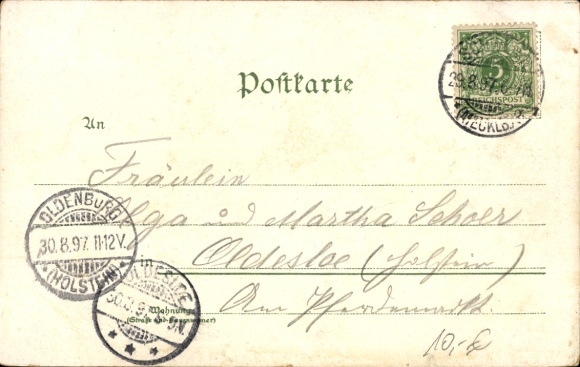 Postkarte
5
REICHSPOST
29.8.97.
(MECKLB.)
An
Fräulein
Olga u Martha Schoer
in Oldesloe (Holstein)
Am Pferdemarkt.
Wohnung
(Straße und Hausnummer)
OLDENBURG
30.8.97. 11-12V.
* (HOLSTEIN) *
OLDESLOE
30.8.97
10,-€